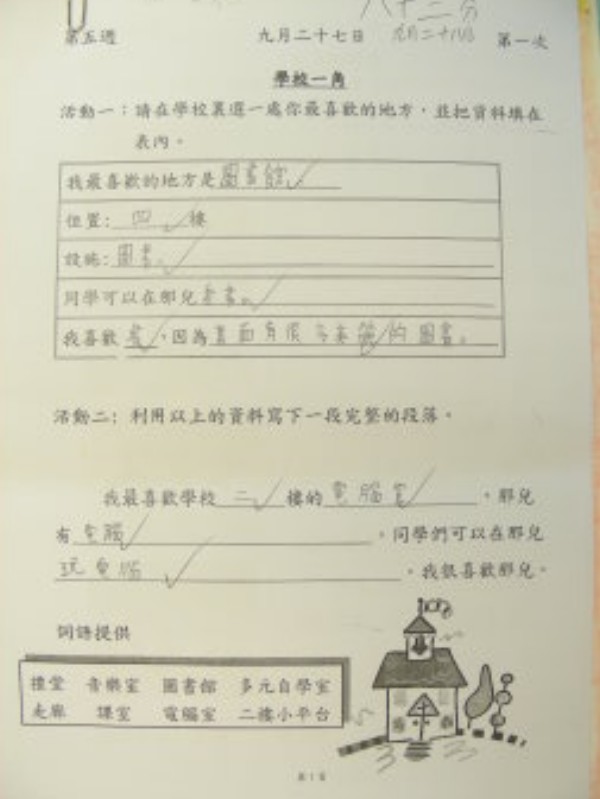 八十二分
第五週 九月二十七日 九月二十八日 第一次
學校一角
活動一：請在學校裏選一處你最喜歡的地方，並把資料填在
表內。
我最喜歡的地方是圖書館
位置：四樓
設施：圖書。
同學可以在那兒看書。
我喜歡，因為裏面有很多的圖書。
活動二：利用以上的資料寫下一段完整的段落。
我最喜歡學校二樓的電腦室，那兒
有電腦，同學們可以在那兒
玩電腦。我很喜歡那兒。
詞語提供
禮堂 音樂室 圖書館 多元自學室
走廊 課室 電腦室 二樓小平台
第1頁